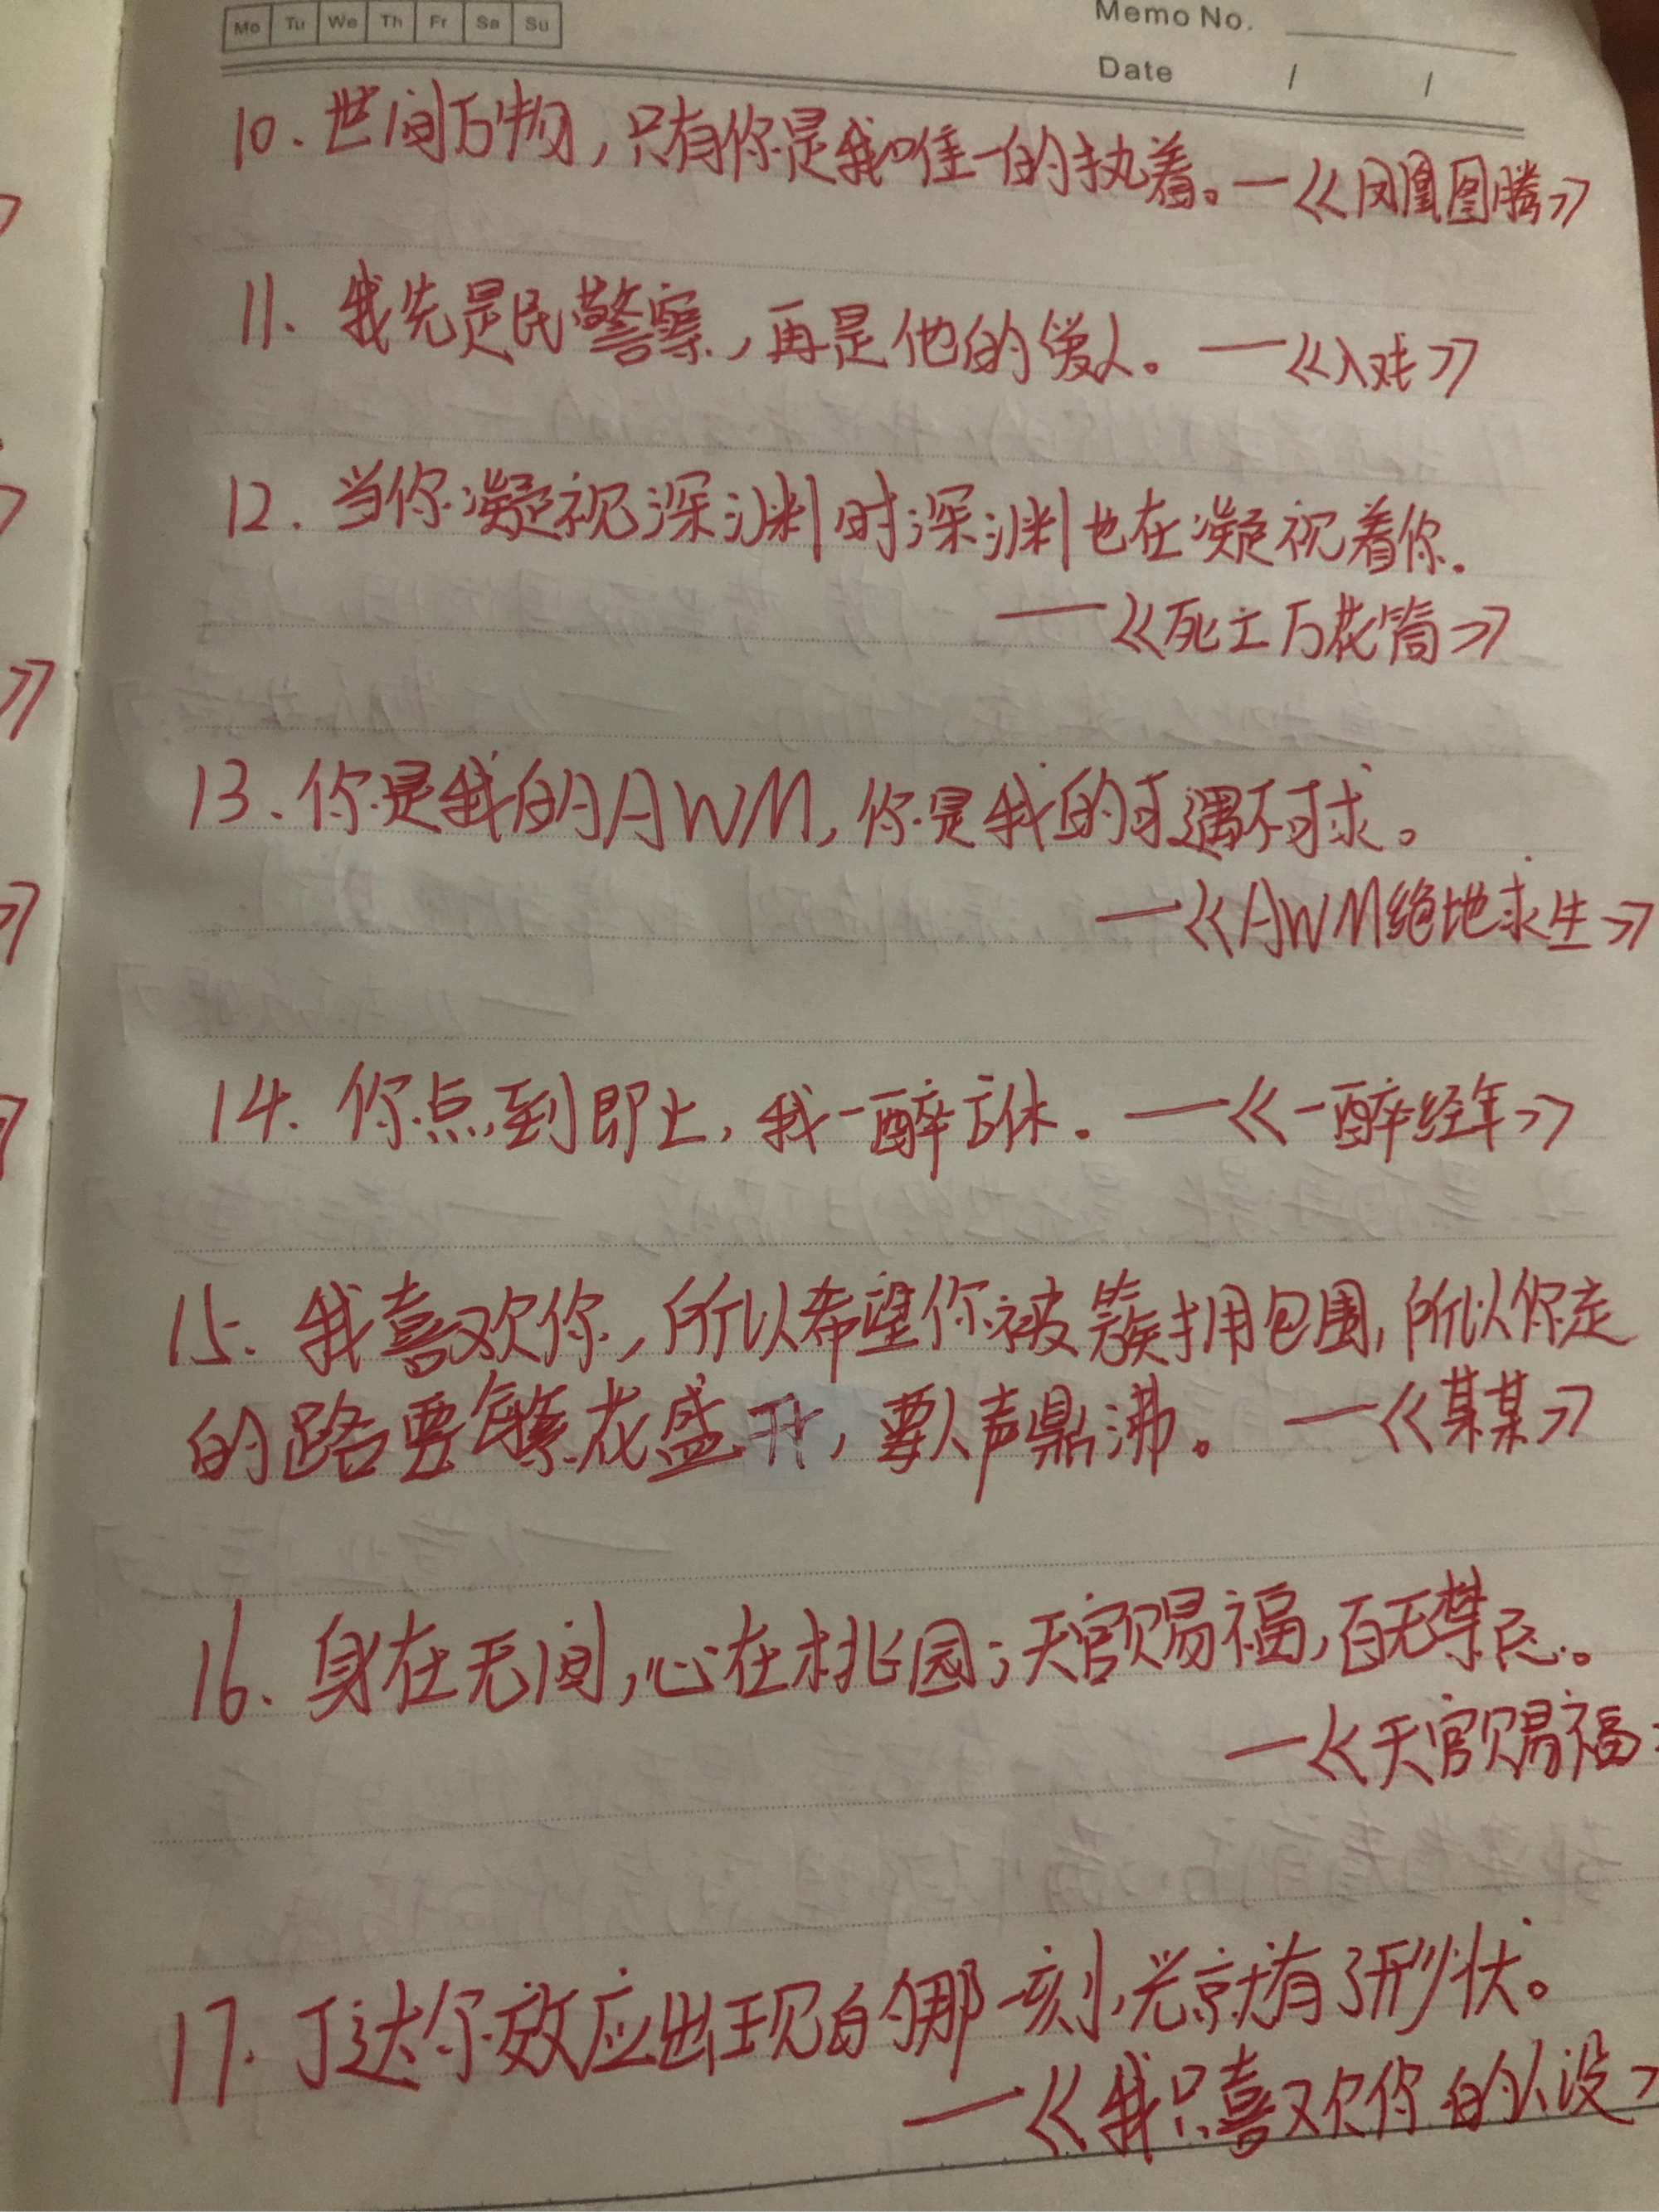 Mo Tu We Th Fr Sa Su
Memo No.
Date / /
10. 世间万物,只有你是我唯一的执着。—《凤凰图腾》
11. 我先是民警察,再是他的爱人。——《入戏》
12. 当你凝视深渊时深渊也在凝视着你.
——《死亡万花筒》
13. 你是我的AWM,你是我的可遇不可求。
—《AWM绝地求生》
14. 你点到即止,我一醉方休. ——《一醉经年》
15. 我喜欢你,所以希望你被簇拥包围,所以你走
的路要繁花盛开,要人声鼎沸。——《某某》
16. 身在无间,心在桃园;天官赐福,百无禁忌。
—《天官赐福
17. 丁达尔效应出现的那一刻,光就有了形状。
—《我只喜欢你的人设》